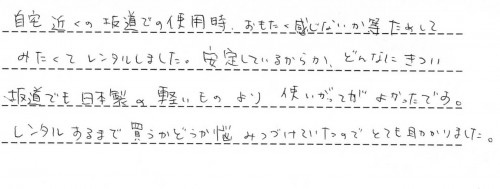 自宅近くの坂道での使用時、おもたく感じないか等ためして
みたくてレンタルしました。安定しているからか、どんなにきつい
坂道でも日本製の軽いものより使いがってがよかったです。
レンタルするまで買うかどうか悩みつづけていたのでとても助かりました。